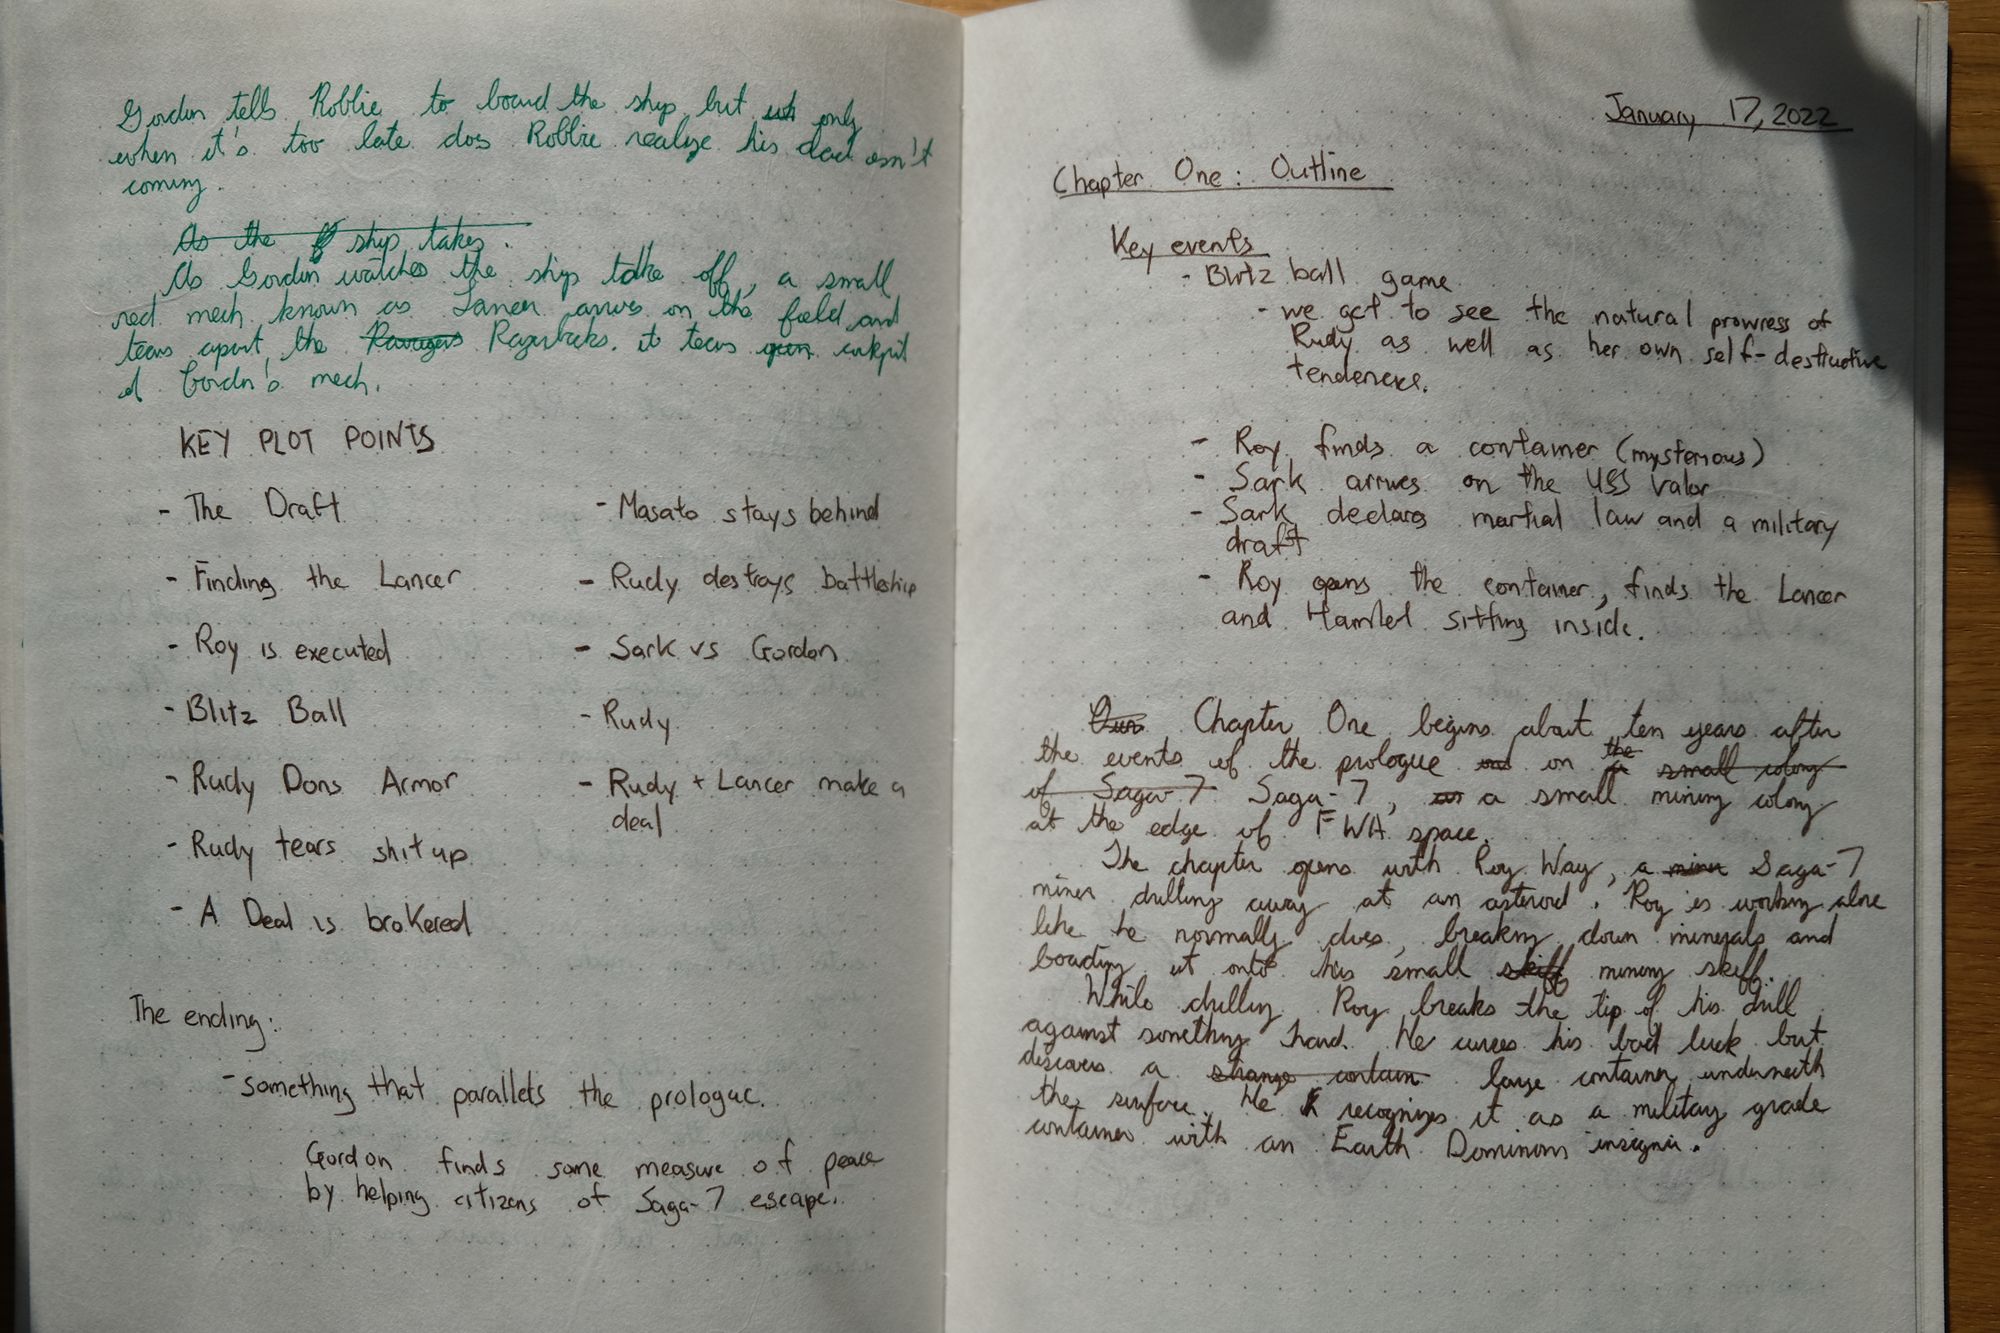 Gordon tells Robbie to board the ship but only
when it's too late dos Robbie realize his dad isn't
coming.
As the ship takes.
As Gordon watches the ship take off, a small
red mech known as Lancer arrives on the field and
tears apart the Ravagers Razorbacks. it tears open cockpit
of Gordon's mech.
KEY PLOT POINTS
- The Draft
- Finding the Lancer
- Roy is executed
- Blitz Ball
- Rudy Dons Armor
- Rudy tears shit up
- A Deal is brokered
- Masato stays behind
- Rudy destroys battleship
- Sark vs Gordon
- Rudy
- Rudy + Lancer make a
deal
The ending:
- something that parallels the prologue.
Gordon finds some measure of peace
by helping citizens of Saga-7 escape.
January 17, 2022
Chapter One: Outline
Key events
- Blitz ball game
- we get to see the natural prowress of
Rudy as well as her own self-destructive
tendencies.
- Roy finds a container (mysterious)
- Sark arrives on the USS Valor
- Sark declares martial law and a military
draft
- Roy opens the container, finds the Lancer
and Hamlet sitting inside.
Our Chapter One begins about ten years after
the events of the prologue and on the small colony
of Saga-7 Saga-7, as a small mining colony
at the edge of FWA space.
The chapter opens with Roy Way, a miner Saga-7
miner drilling away at an asteroid. Roy is working alone
like he normally does, breaking down minerals and
loading it onto his small skiff mining skiff.
While drilling Roy breaks the tip of his drill
against something hard. He curses his bad luck but
discovers a strange contain large container underneath
the surface. He recognizes it as a military grade
container with an Earth Dominion insignia.